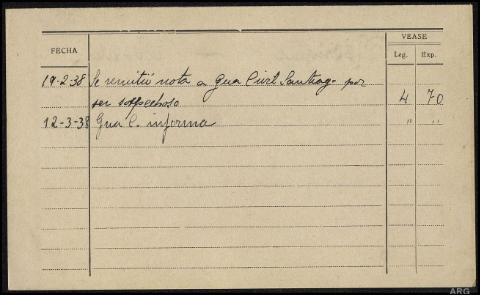 VEASE
FECHA Leg. Exp.
19-2-38 Se remitió nota a Gua Civil Santiago por
ser sospechoso 4 70
12-3-38 Gua C. informa " "
ARG